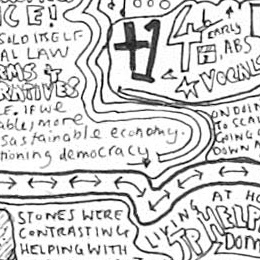 CE!
SOLD ITSELF
AL LAW
RMS &
RATIVES
E. IF WE
able, more
sustainable economy.
tioning democracy
+1
4
EARLY
, ABS
VOCALS
ON DOIN
TO SCAL
GOING
DOWN A
STONES WERE
CONTRASTING
HELPING WITH
LIVING AT HO
HELP
DOM